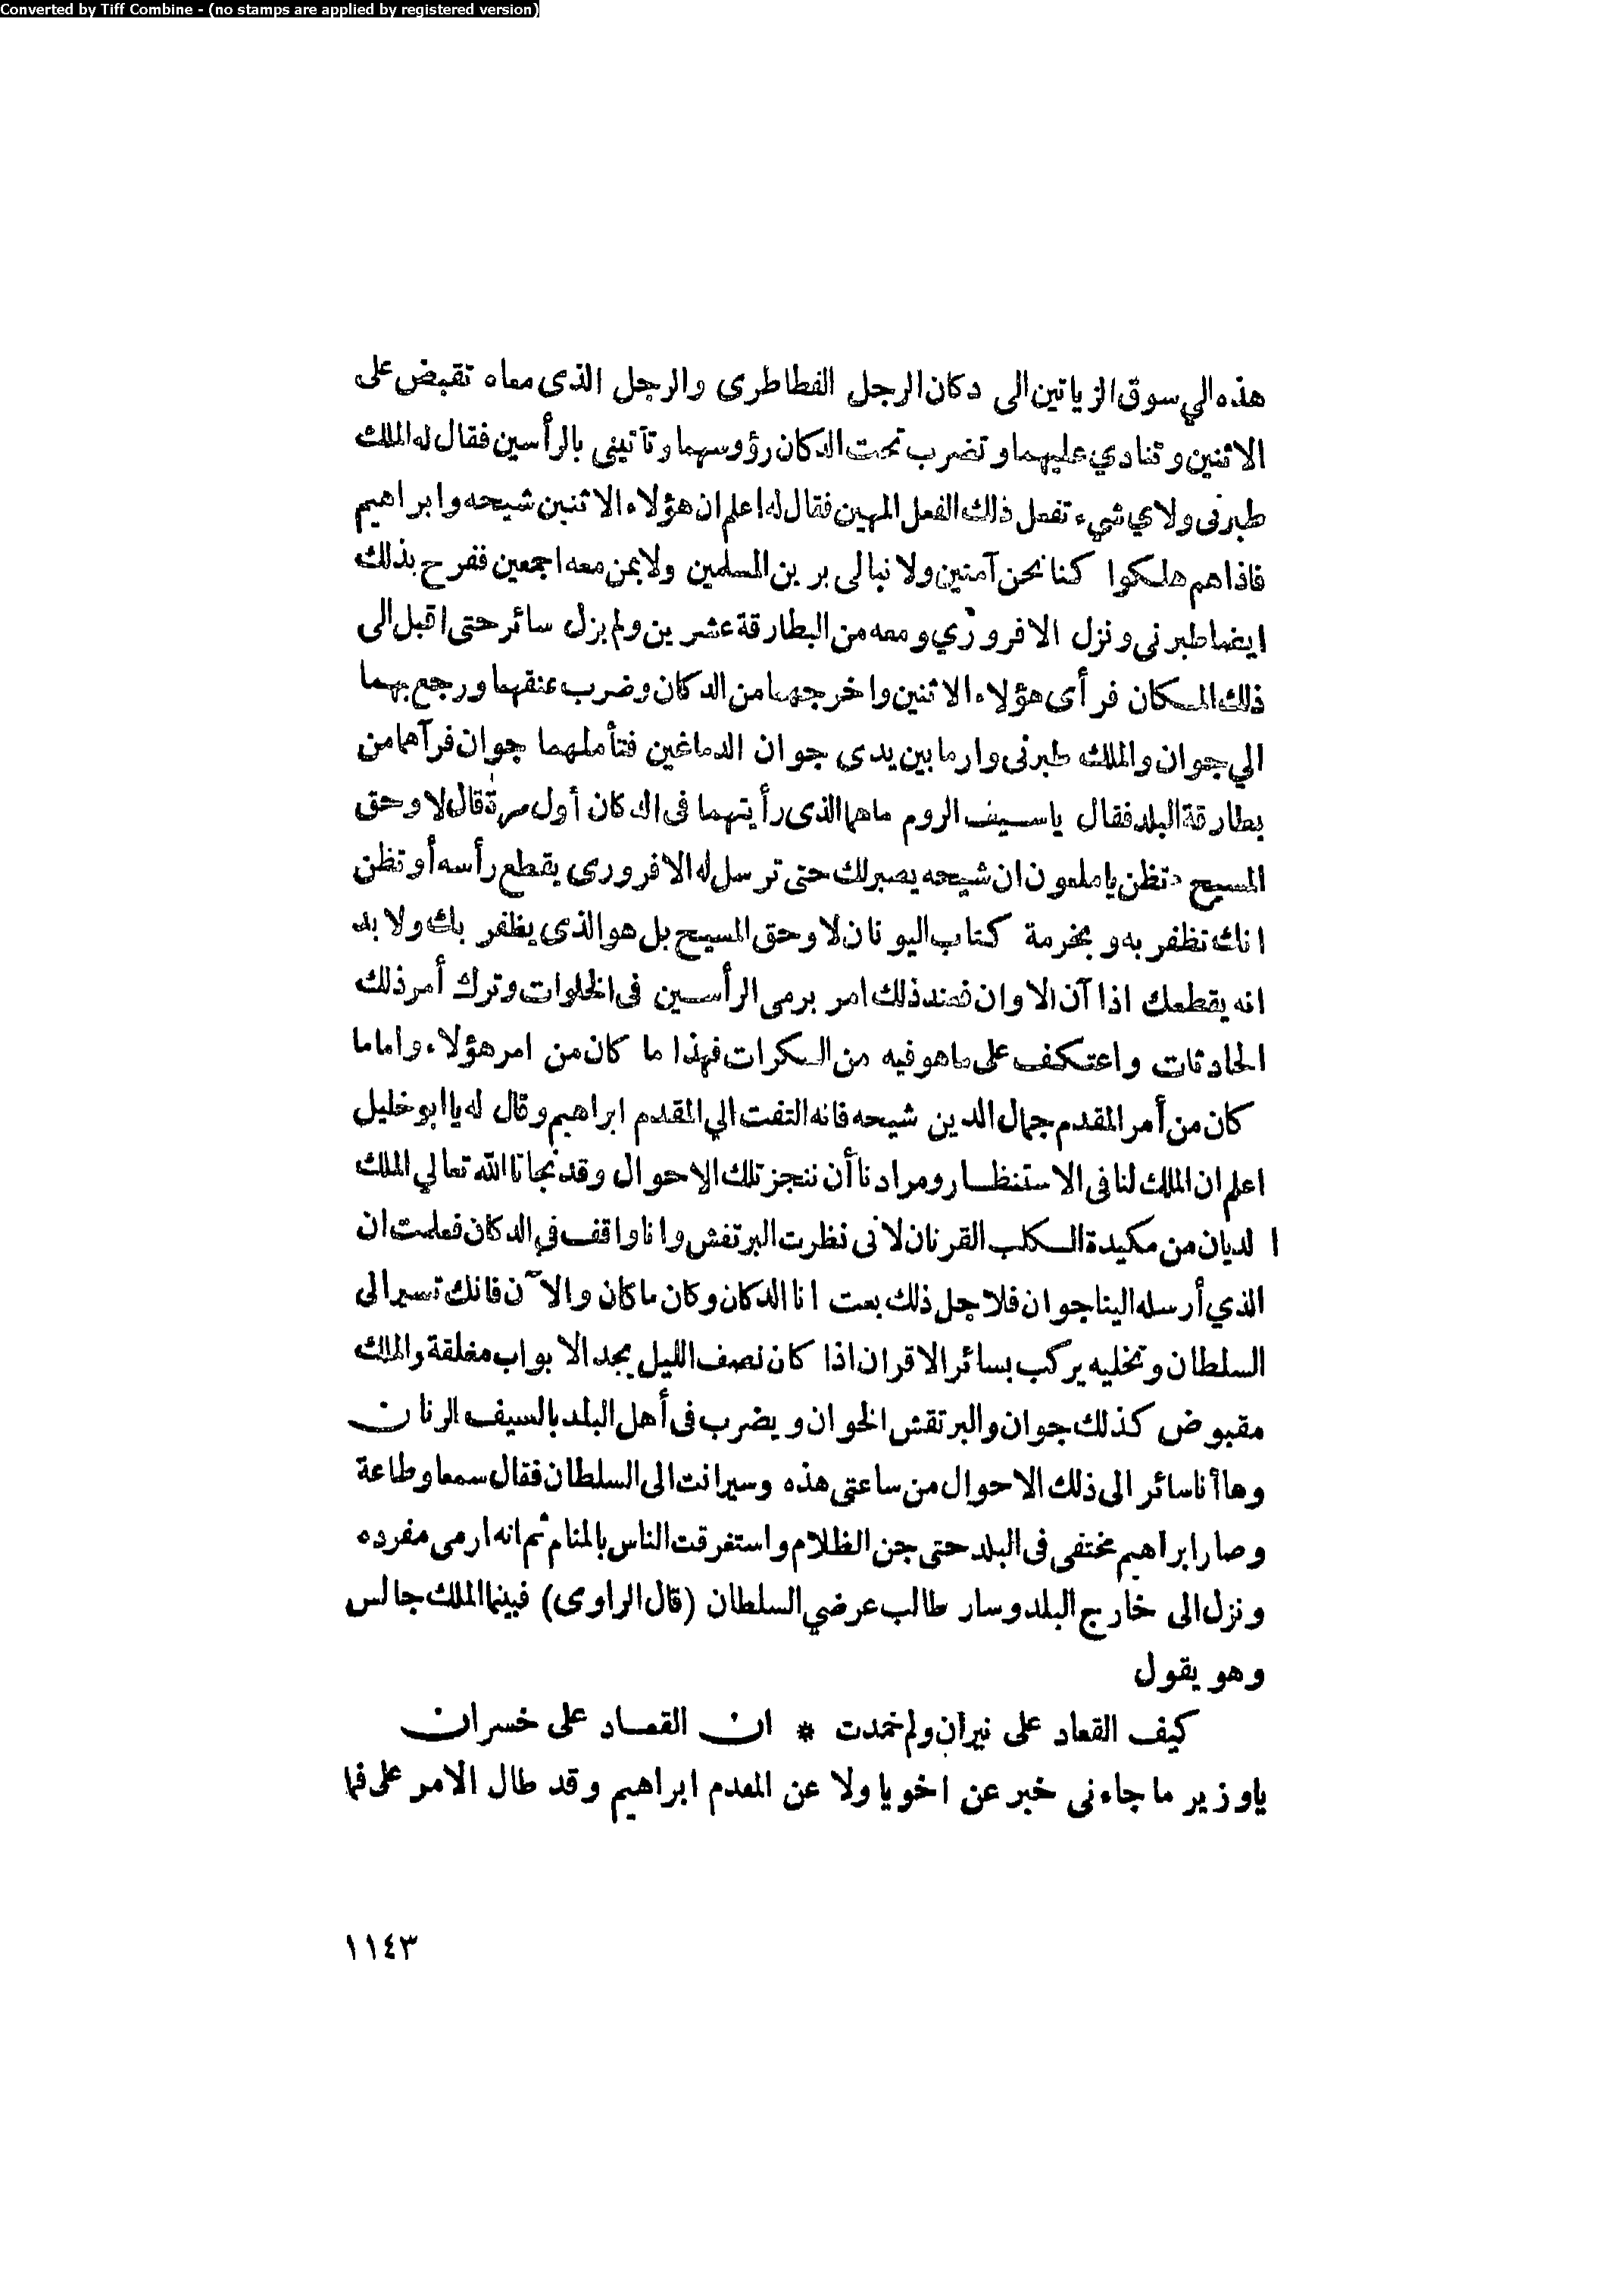 Converted by Tiff Combine - (no stamps are applied by registered version)
هذه الي سوق الزياتين الى دكان الرجل الفطاطرى والرجل الذى معاه تقبض على
الاثنين وتنادي عليهما وتضرب تحت الدكان رؤوسهما وتأتينى بالرأسين فقال له الملك
طبرنى ولاي شيء تفعل ذلك الفعل المهين فقال له اعلم ان هؤلاء الاثنين شيحه وابراهيم
فاذاهم هلكوا كنا نحن آمنين ولا نبالى برين المسلمين ولا بمن معه اجمعين ففرح بذلك
ايضا طبرنى ونزل الافروري ومعه من البطارقة عشرين ولم يزل سائر حتى اقبل الى
ذلك المكان فرأى هؤلاء الاثنين واخرجهما من الدكان وضرب عنقهما ورجع بهما
الي جوان والملك طبرنى وارما بين يدى جوان الدماغين فتأملهما جوان فرآهما من
بطارقة البلد فقال ياسيف الروم ماهما الذى رأيتهما فى الدكان أول مرة قال لا وحق
المسيح تظن ياملعون ان شيحه يصبرلك حتى ترسل له الافرورى يقطع رأسه أو تظن
انك تظفر به وبحرمة كتاب اليونان لا وحق المسيح بل هو الذى يظفر بك ولا بد
انه يقطعك اذا آن الاوان فعند ذلك امر برمى الرأسين فى الخلوات وترك أمر ذلك
الحادثات واعتكف على ماهو فيه من السكرات فهذا ما كان من امر هؤلاء واما ما
كان من أمر المقدم جمال الدين شيحه فانه التفت الي المقدم ابراهيم وقال له يا ابو خليل
اعلم ان الملك لنا فى الاستنظار ومرادنا أن ننجز تلك الاحوال وقد نجانا الله تعالي الملك
ا لديان من مكيدة الكلب القرنان لانى نظرت البرتفش وانا واقف في الدكان فعلمت ان
الذي أرسله الينا جوان فلاجل ذلك بعت انا الدكان وكان ما كان والآن فانك تسير الى
السلطان وتخليه يركب بسائر الاقران اذا كان نصف الليل يجد الابواب مغلقة والملك
مقبوض كذلك جوان والبرتقش الخوان ويضرب فى أهل البلد بالسيف الرنان
وها أنا سائر الى ذلك الاحوال من ساعتى هذه وسير انت الى السلطان فقال سمعا وطاعة
وصار ابراهيم مختفى فى البلد حتى جن الظلام واستغرقت الناس بالمنام ثم انه ارمى مفرده
ونزل الى خارج البلد وسار طالب عرضي السلطان (قال الراوى) فبينما الملك جالس
وهو يقول
كيف القعاد على نيران ولم خمدت * ان القعاد على خسران
ياوزير ما جاءنى خبر عن اخويا ولا عن المقدم ابراهيم وقد طال الامر على فما
١١٤٣